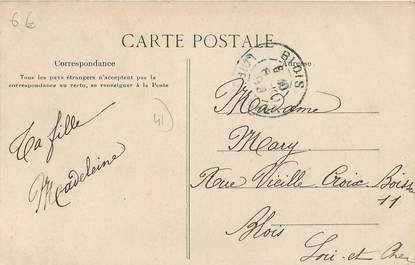 6 €
CARTE POSTALE
Correspondance
Tous les pays étrangers n'acceptent pas la
correspondance au recto, se renseigner à la Poste
Adresse
BLOIS
41
Ta fille
Madeleine
Madame
Mary
Rue Vieille Croix Boissée
11
Blois
Loir et Cher